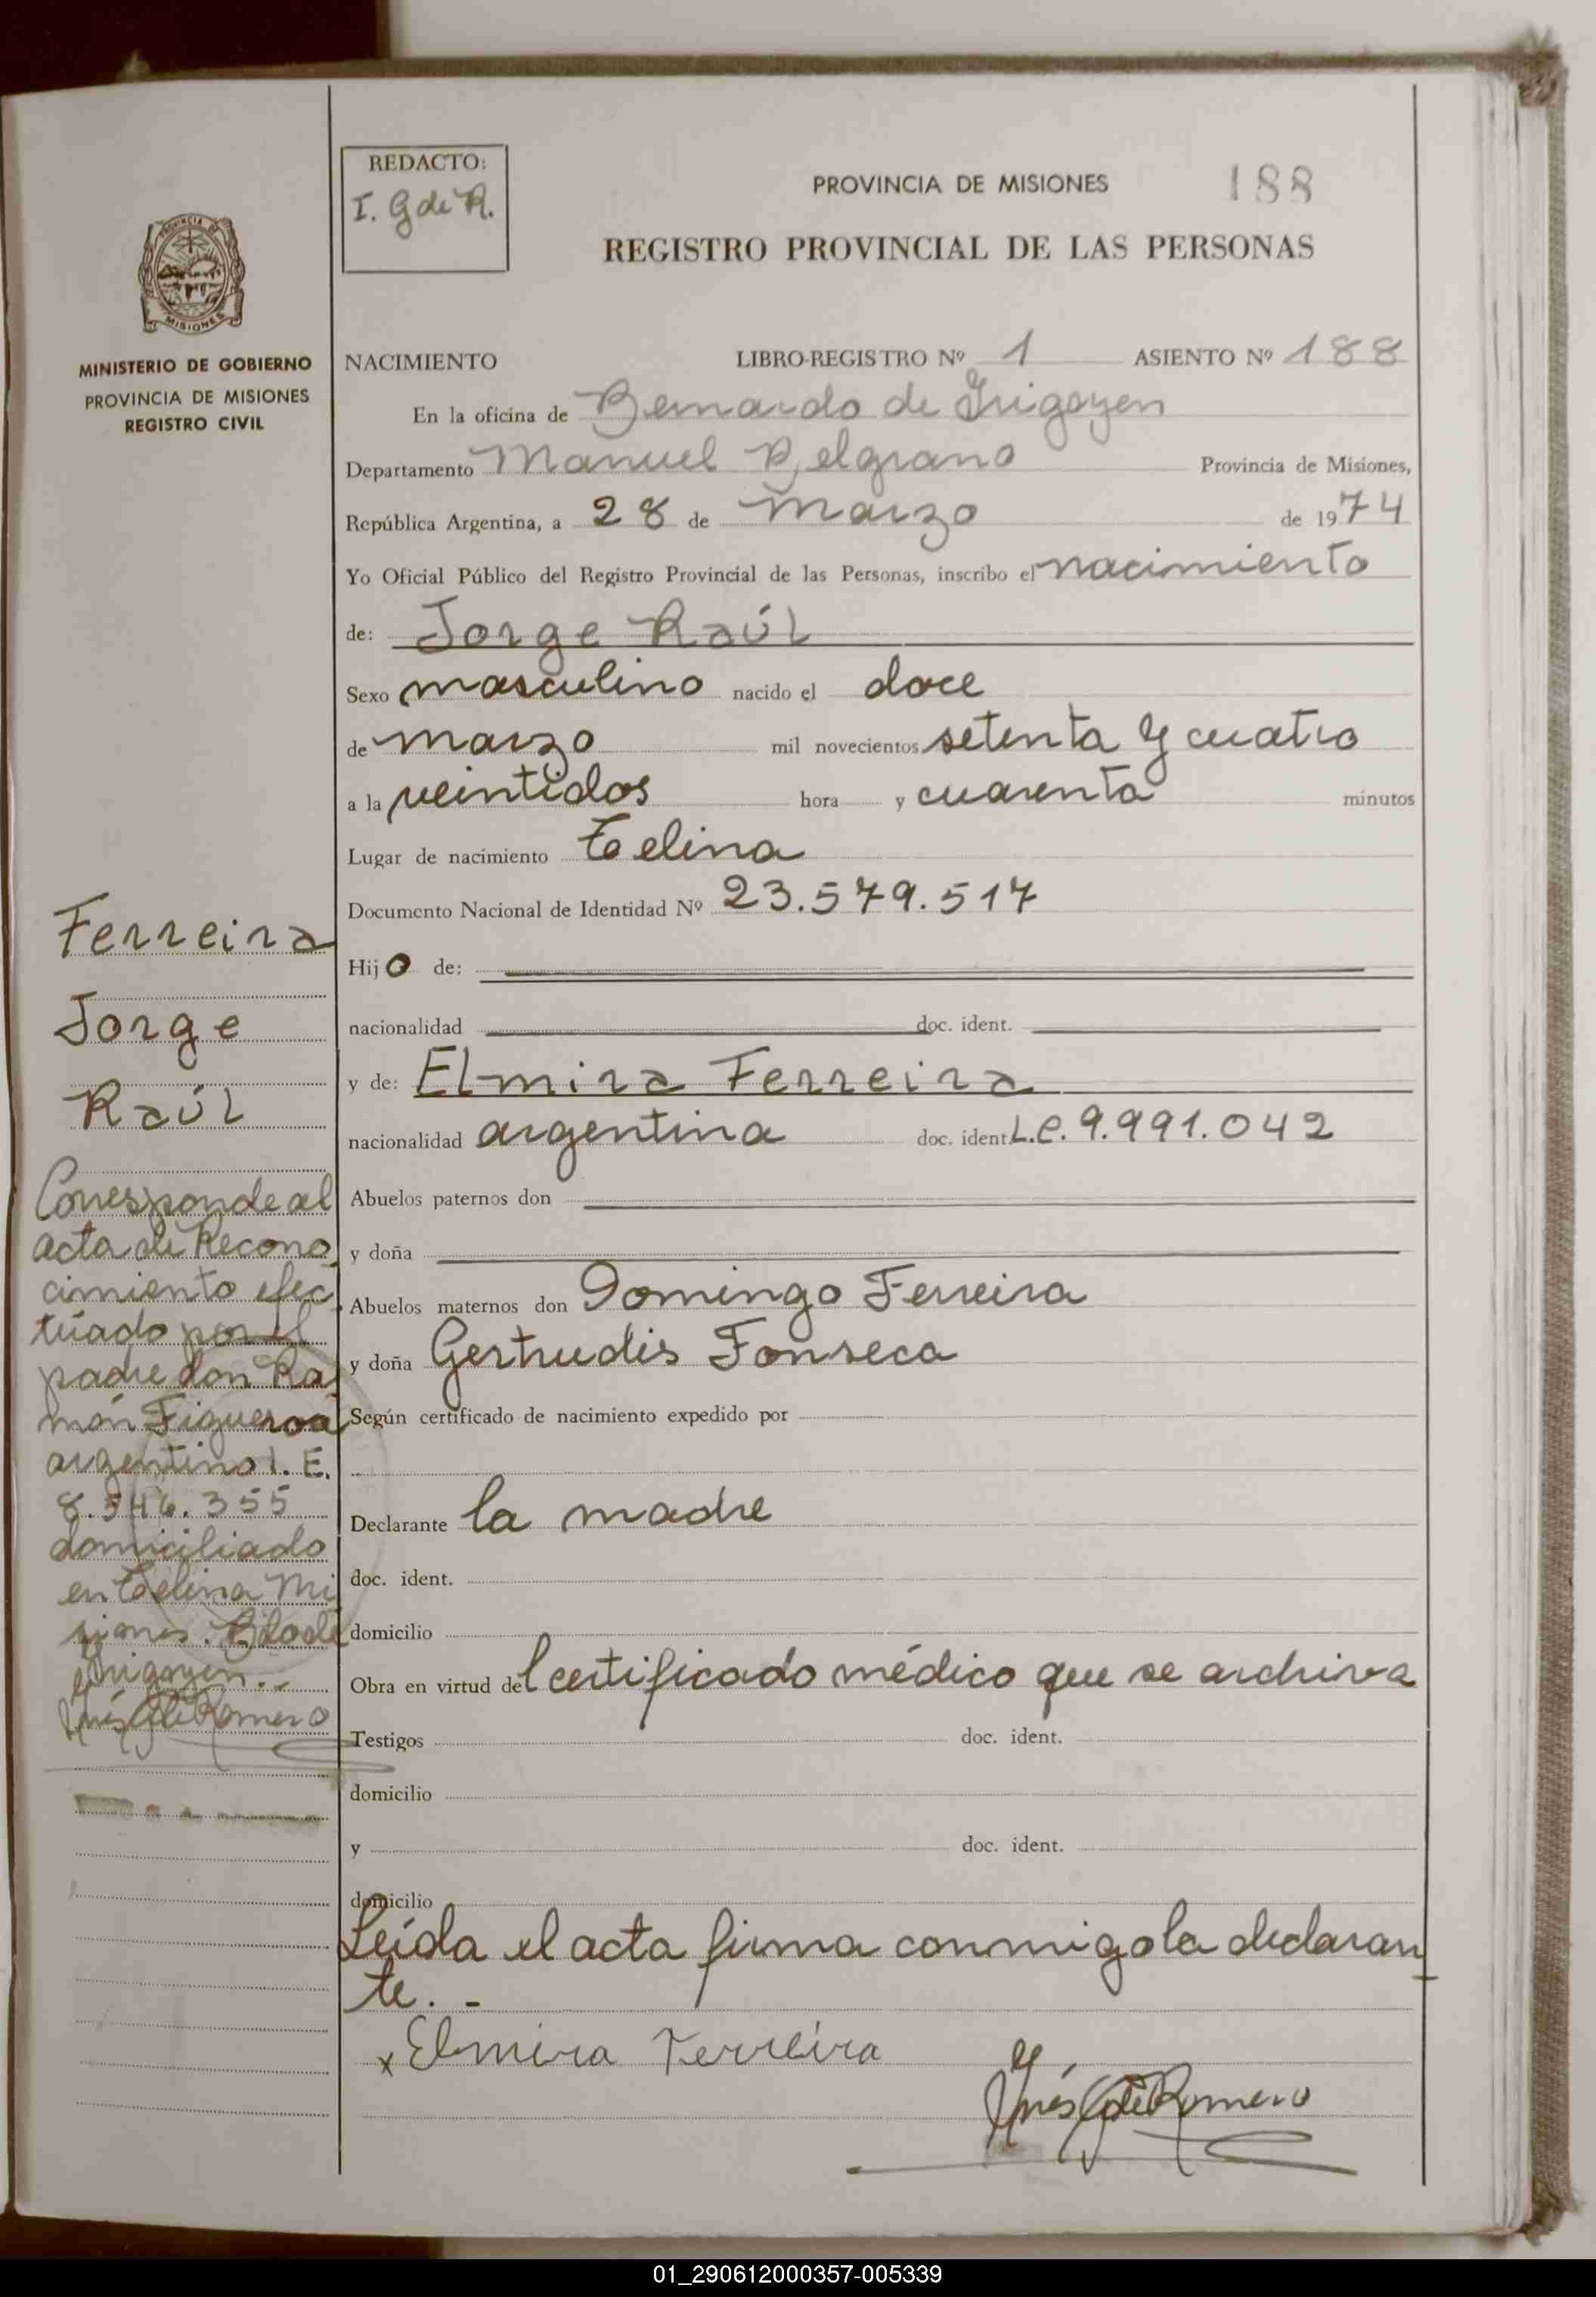 REDACTO:
I. G de R.
PROVINCIA DE MISIONES
188
REGISTRO PROVINCIAL DE LAS PERSONAS
MISIONES
MINISTERIO DE GOBIERNO
PROVINCIA DE MISIONES
REGISTRO CIVIL
NACIMIENTO LIBRO-REGISTRO Nº 1 ASIENTO Nº 188
En la oficina de Bernardo de Irigoyen
Departamento Manuel Belgrano Provincia de Misiones,
República Argentina, a 28 de Marzo de 1974
Yo Oficial Público del Registro Provincial de las Personas, inscribo el nacimiento
de: Jorge Raúl
Sexo masculino nacido el doce
de marzo mil novecientos setenta y cuatro
a la veintidos hora y cuarenta minutos
Lugar de nacimiento
Documento Nacional de Identidad Nº 23.579.517
Hijo de:
nacionalidad doc. ident.
y de: Elmira Ferreira
nacionalidad argentina doc. ident L.C. 9.991.042
Abuelos paternos don
y doña
Abuelos maternos don Domingo Ferreira
y doña Gertrudis Fonseca
Según certificado de nacimiento expedido por
Declarante la madre
doc. ident.
domicilio
Obra en virtud del certificado médico que se archiva
Testigos doc. ident.
domicilio
y doc. ident.
domicilio
Leída el acta firma conmigo la declaran
te. -
x Elmira Ferreira
Inés G de Romero
Ferreira
Jorge
Raúl
Corresponde al
acta de Recono
cimiento efec
tuado por el
padre don Ra
món Figueroa
argentino L. E.
8.546.355
domiciliado
en Mi
siones. Bdo de
Irigoyen..-
Inés G de Romero
01_290612000357-005339